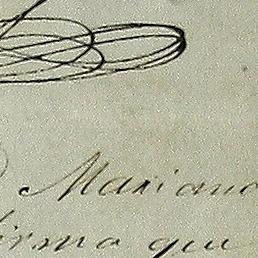 Mariano
firma que